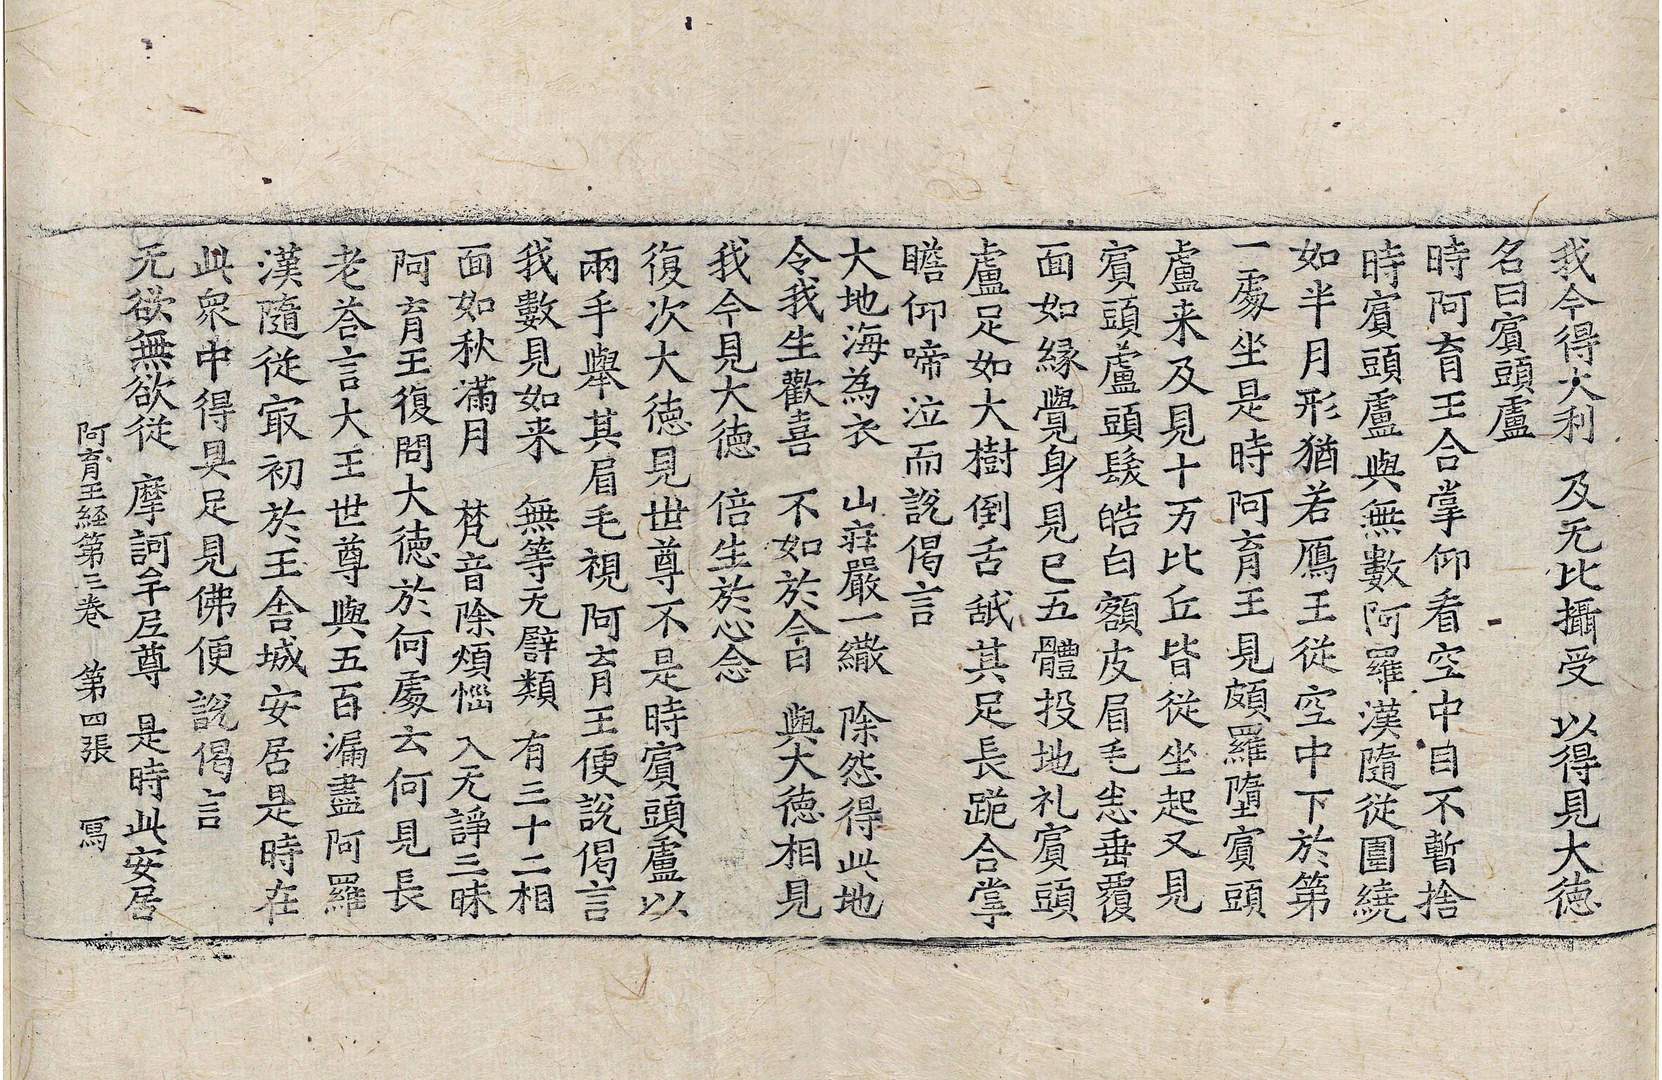 我今得大利　及无比攝受　以得見大德
名曰賔頭盧
時阿育王合掌仰看空中目不暫捨
時賔頭盧與無數阿羅漢隨從圍繞
如半月形猶若鴈王從空中下於第
一處坐是時阿育王見頗羅墮賔頭
盧来及見十万比丘皆從坐起又見
賔頭蘆頭髮皓白額皮眉毛悉垂覆
面如縁覺身見已五體投地礼賔頭
盧足如大樹倒舌舐其足長跪合掌
瞻仰啼泣而說偈言
大地海為衣　山莊嚴一繖　除怨得此地
令我生歡喜　不如於今日　與大德相見
我今見大德　倍生於心念
復次大德見世尊不是時賔頭盧以
兩手舉其眉毛視阿育王便說偈言
我數見如来　無等无譬類　有三十二相
面如秋滿月　梵音除煩惱　入无諍三昧
阿育王復問大德於何處云何見長
老荅言大王世尊與五百漏盡阿羅
漢隨從㝡初於王舍城安居是時在
此衆中得具足見佛便說偈言
无欲無欲從　摩訶牟尼尊　是時此安居
阿育王経第三卷　第四張　寫